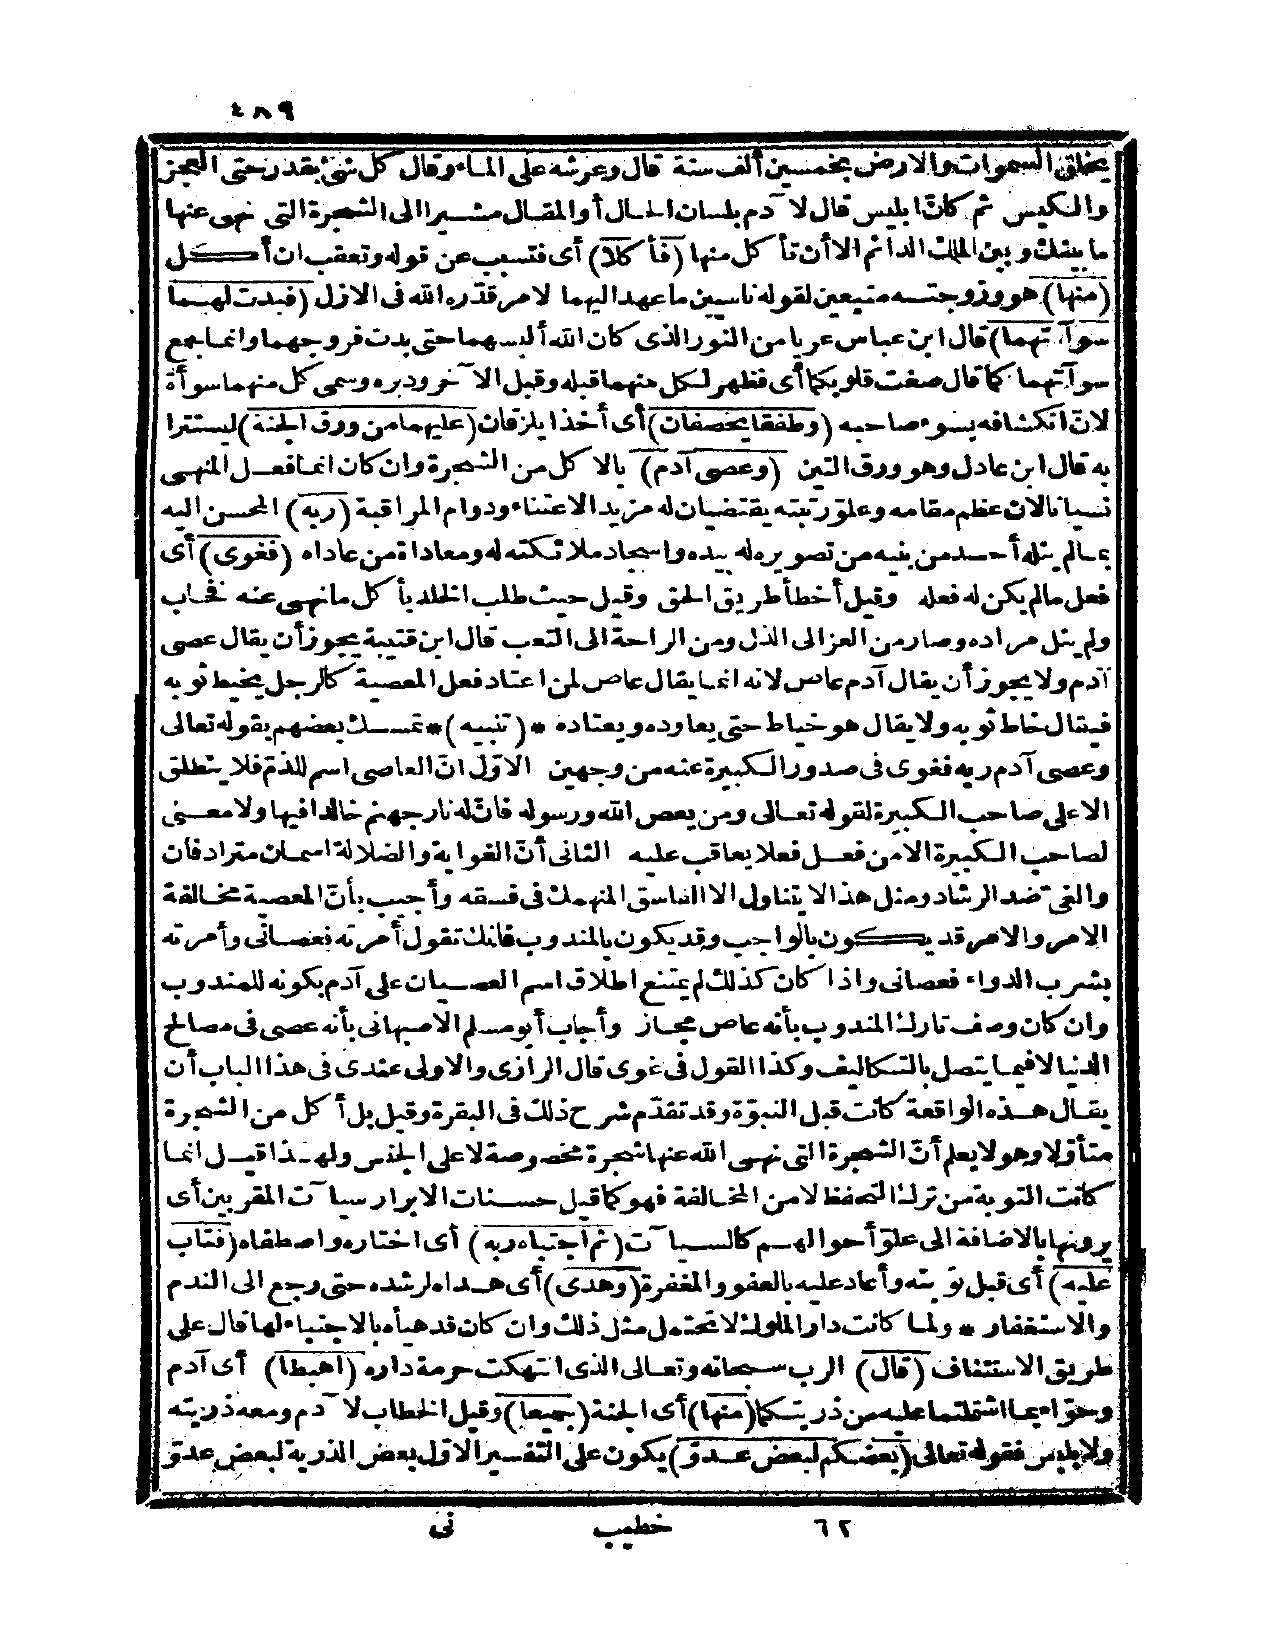 ٤٨٩
يخلق السموات والارض بخمسين ألف سنة قال وعرشه على الماء وقال كل شئ بقدر حتى العجز
والكيس ثم كانّ ابليس قال لا دم بلسان الحال أو المقال مشيرا الى الشجرة التى نهى عنها
ما بينك وبين الملك الدائم الا أن تأكل منها (فأكلا) أى فتسبب عن قوله وتعقب ان أكل
(منها) هو وزوجته متبعين لقوله ناسين ما عهد اليهما لامر قدّره الله فى الازل (فبدت لهما
سوآتهما) قال ابن عباس عريا من النور الذى كان الله ألبسهما حتى بدت فروجهما وانما جمع
سوآتهما كما قال صغت قلوبكما أى فظهر لكل منهما قبله وقبل الآخر ودبره وسمى كل منهما سوأة
لانّ انكشافه يسوء صاحبه (وطفقا يخصفان) أى أخذا يلزقان (عليهما من ورق الجنة) ليستترا
به قال ابن عادل وهو ورق التين (وعصى آدم) بالاكل من الشجرة وان كان انما فعل المنهى
نسيانا لان عظم مقامه وعلوّ رتبته يقتضيان له مزيد الاعتناء ودوام المراقبة (ربه) المحسن اليه
بمالم ينله أحد من بنيه من تصويره له بيده واسجاد ملائكته له ومعاداة من عاداه (فغوى) أى
فعل مالم يكن له فعله وقيل أخطأ طريق الحق وقيل حيث طلب الخلد بأكل ما نهى عنه فخاب
ولم ينل مراده وصار من العز الى الذل ومن الراحة الى التعب قال ابن قتيبة يجوز أن يقال عصى
آدم ولا يجوز أن يقال آدم عاص لانه انما يقال عاص لمن اعتاد فعل المعصية كالرجل يخيط ثوبه
فيقال خاط ثوبه ولا يقال هو خياط حتى يعاوده ويعتاده * (تنبيه) * تمسك بعضهم بقوله تعالى
وعصى آدم ربه فغوى فى صدور الكبيرة عنه من وجهين الاوّل انّ العاصى اسم للذم فلا ينطلق
الا على صاحب الكبيرة لقوله تعالى ومن يعص الله ورسوله فانّ له نار جهنم خالدا فيها ولا معنى
لصاحب الكبيرة الا من فعل فعلا يعاقب عليه الثانى أنّ الغواية والضلالة اسمان مترادفان
والغى ضد الرشاد ومثل هذا لا يتناول الا الفاسق المنهمك فى فسقه وأجيب بأنّ المعصية مخالفة
الامر والامر قد يكون بالواجب وقد يكون بالمندوب فانك تقول أمرته فعصانى وأمرته
بشرب الدواء فعصانى واذا كان كذلك لم يمتنع اطلاق اسم العصيان على آدم بكونه للمندوب
وان كان وصف تارك المندوب بأنه عاص مجاز وأجاب أبو مسلم الاصبهانى بأنه عصى فى مصالح
الدنيا لا فيما يتصل بالتكاليف وكذا القول فى غوى قال الرازى والاولى عندى فى هذا الباب أن
يقال هذه الواقعة كانت قبل النبوّة وقد تقدّم شرح ذلك فى البقرة وقيل بل أكل من الشجرة
متأوّلا وهو لا يعلم أنّ الشجرة التى نهى الله عنها شجرة مخصوصة لا على الجنس ولهذا قيل انما
كانت التوبة من ترك التحفظ لا من المخالفة فهو كما قيل حسنات الابرار سيآت المقربين أى
يرونها بالاضافة الى علوّ أحوالهم كالسيآت (ثم اجتباه ربه) أى اختاره واصطفاه (فتاب
عليه) أى قبل توبته وأعاد عليه بالعفو والمغفرة (وهدى) أى هداه لرشده حتى رجع الى الندم
والاستغفار * ولما كانت دار الملوك لا تحتمل مثل ذلك وان كان قد هيأه بالاجتباء لها قال على
طريق الاستئناف (قال) الرب سبحانه وتعالى الذى انتهكت حرمة داره (اهبطا) أى آدم
وحوّاء بما اشتملتما عليه من ذريتكما (منها) أى الجنة (جميعا) وقيل الخطاب لا دم ومعه ذريته
ولابليس فقوله تعالى (بعضكم لبعض عدوّ) يكون على التفسير الاوّل بعض الذرية لبعض عدوّ
٦٢ خطيب نى